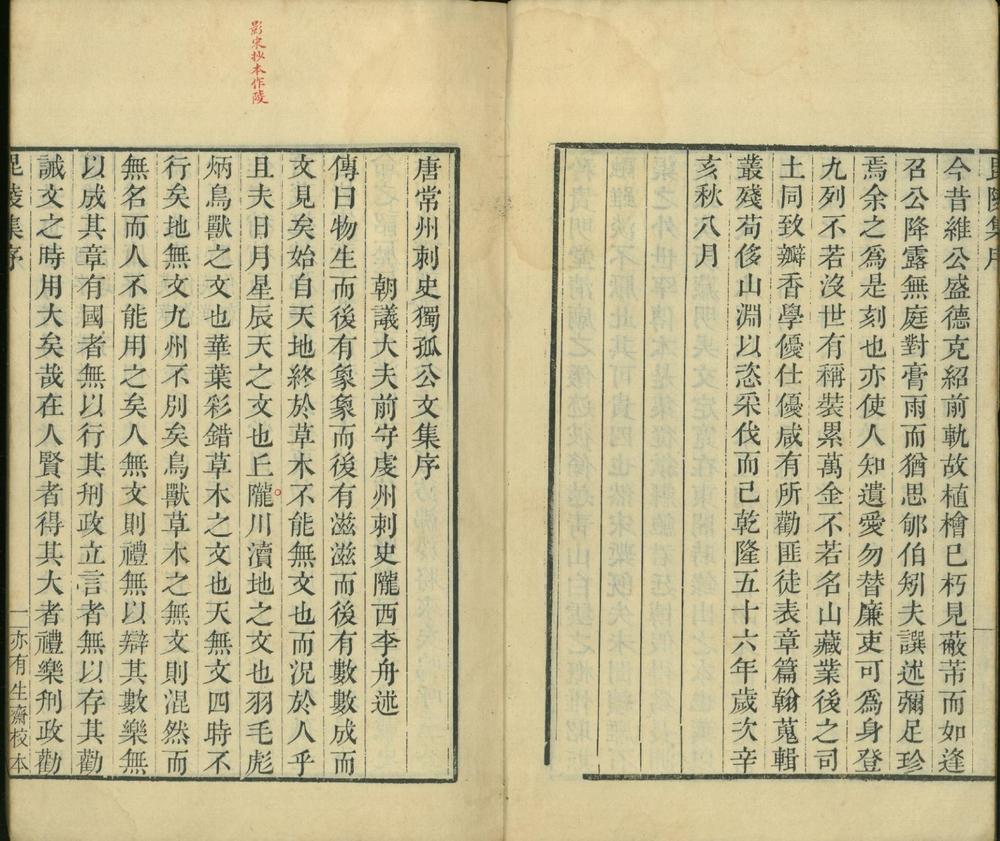 毘陵集序
今昔維公盛德克紹前軌故植檜已朽見蔽芾而如逢
召公降露無庭對膏雨而猶思郇伯矧夫譔述彌足珍
焉余之爲是刻也亦使人知遺愛勿替廉吏可爲身登
九列不若沒世有稱裝累萬金不若名山藏業後之司
土同致瓣香學優仕優咸有所勸匪徒表章篇翰蒐輯
叢殘苟侈山淵以恣采伐而已乾隆五十六年歲次辛
亥秋八月
影宋抄本作陵
唐常州刺史獨孤公文集序
朝議大夫前守虔州刺史隴西李舟述
傳曰物生而後有象象而後有滋滋而後有數數成而
文見矣始自天地終於草木不能無文也而況於人乎
且夫日月星辰天之文也丘隴川瀆地之文也羽毛彪
炳鳥獸之文也華葉彩錯草木之文也天無文四時不
行矣地無文九州不別矣鳥獸草木之無文則混然而
無名而人不能用之矣人無文則禮無以辯其數樂無
以成其章有國者無以行其刑政立言者無以存其勸
誡文之時用大矣哉在人賢者得其大者禮樂刑政勸
毘陵集序
一
亦有生齋校本